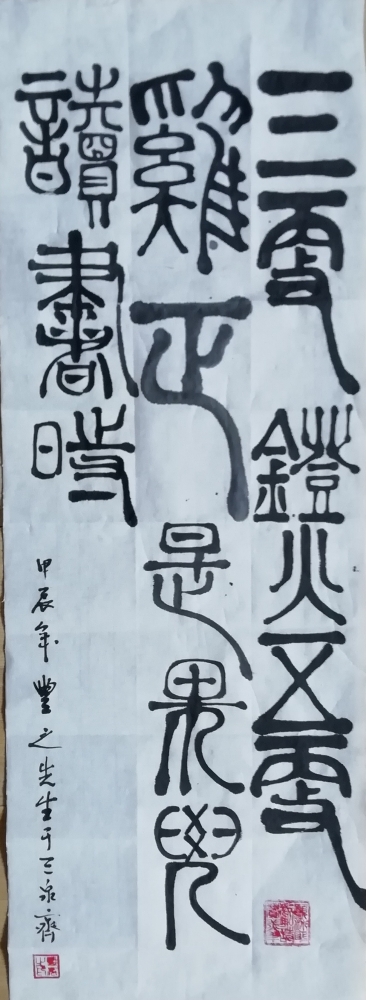 三更鐙火五更
雞正是男兒
讀書時
甲辰年豐之先生于三泉齋